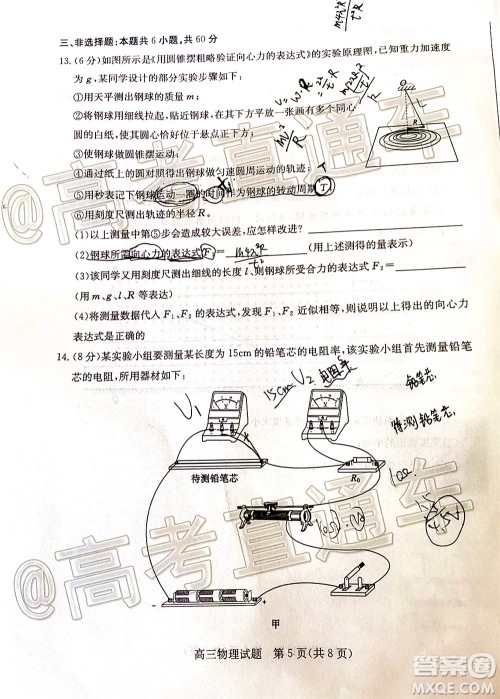 三、非选择题:本题共6小题,共60分
13.(6分)如图所示是《用圆锥摆粗略验证向心力的表达式》的实验原理图,已知重力加速度
为g,某同学设计的部分实验步骤如下:
①用天平测出钢球的质量m;
②将钢球用细线拉起,贴近钢球,在其下方平放一张画有多个同心
圆的白纸,使其圆心恰好位于悬点正下方;
③使钢球做圆锥摆运动;
④通过纸上的圆对照得出钢球做匀速圆周运动的轨迹;
⑤用秒表记下钢球运动一圈的时间作为钢球的转动周期T
⑥用刻度尺测出轨迹的半径R。
(1)以上测量中第⑤步会造成较大误差,应怎样改进?
(2)钢球所需向心力的表达式F₁= (用上述测得的量表示)
(3)该同学又用刻度尺测出细线的长度l,则钢球受到的合力表达式F₂=
(用m、g、l、R等表示)
(4)将测量数据代入F₁、F₂的表达式,发现F₁、F₂近似相等,则说明以上得出的向心力
表达式是正确的
14.(8分)某实验小组要测量某长度为15cm的铅笔芯的电阻率,该实验小组首先测量铅笔
芯的电阻,所用器材如下:
O
R
U₁
15cm
U₂
电阻率
铅笔芯
待测铅笔芯
待测铅笔芯
R₀
甲
高三物理试题 第5页(共8页)
@高考直通车
@高考直通车
答案圈
MXQE.COM